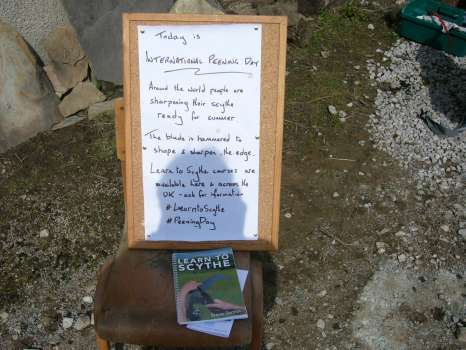 Today is
INTERNATIONAL PEENING DAY
Around the world people are
sharpening their scythe
ready for summer
The blade is hammered to
shape & sharpen the edge.
Learn to Scythe courses are
available here & across the
UK - ask for information
#LearntoScythe
#PeeningDay
LEARN TO
SCYTHE